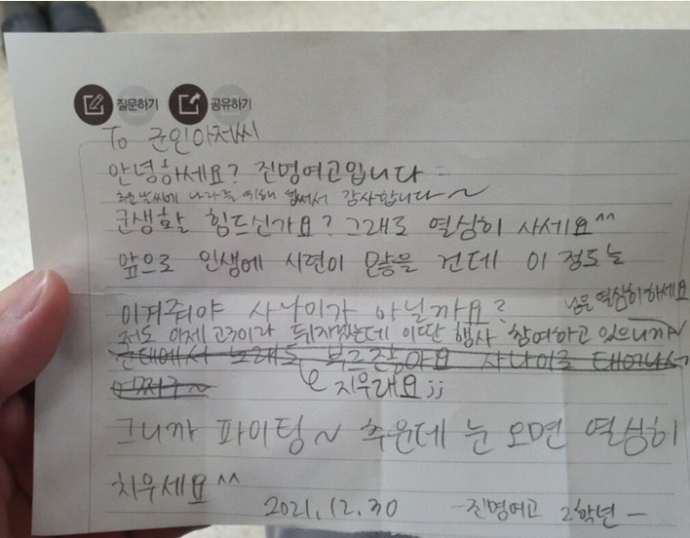 질문하기 공유하기
To 군인아저씨
안녕하세요? 진명여고입니다
추운 날씨에 나라를 위해 힘써서 감사합니다~
군생활 힘드신가요? 그래도 열심히 사세요^^
앞으로 인생에 시련이 많을 건데 이 정도는
이겨줘야 사나이가 아닐까요?
눈을 열심히 하세요
저도 이제 고3이라 뒤지겠는데 이딴 행사 참여하고 있으니까~
군대에서 노래도 부르잖아요 사나이로 태어나서
어쩌구~
지우래요;;
그니까 파이팅~ 추운데 눈 오면 열심히
치우세요^^
2021.12.30 -진명여고 2학년-